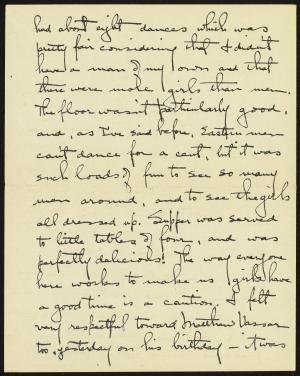 had about eight dances which was
pretty fair considering that I didn't
have a man of my own and that
there were more girls than men.
The floor wasn't particularly good,
and, as I've said before, Eastern men
can't dance for a cent, but it was
such loads of fun to see so many
men around, and to see the girls
all dressed up. Supper was served
to little tables of four, and was
perfectly delicious! The way everyone
here works to make us girls have
a good time is a caution. I felt
very respectful toward Matthew Vassar
too, yesterday on his birthday – it was